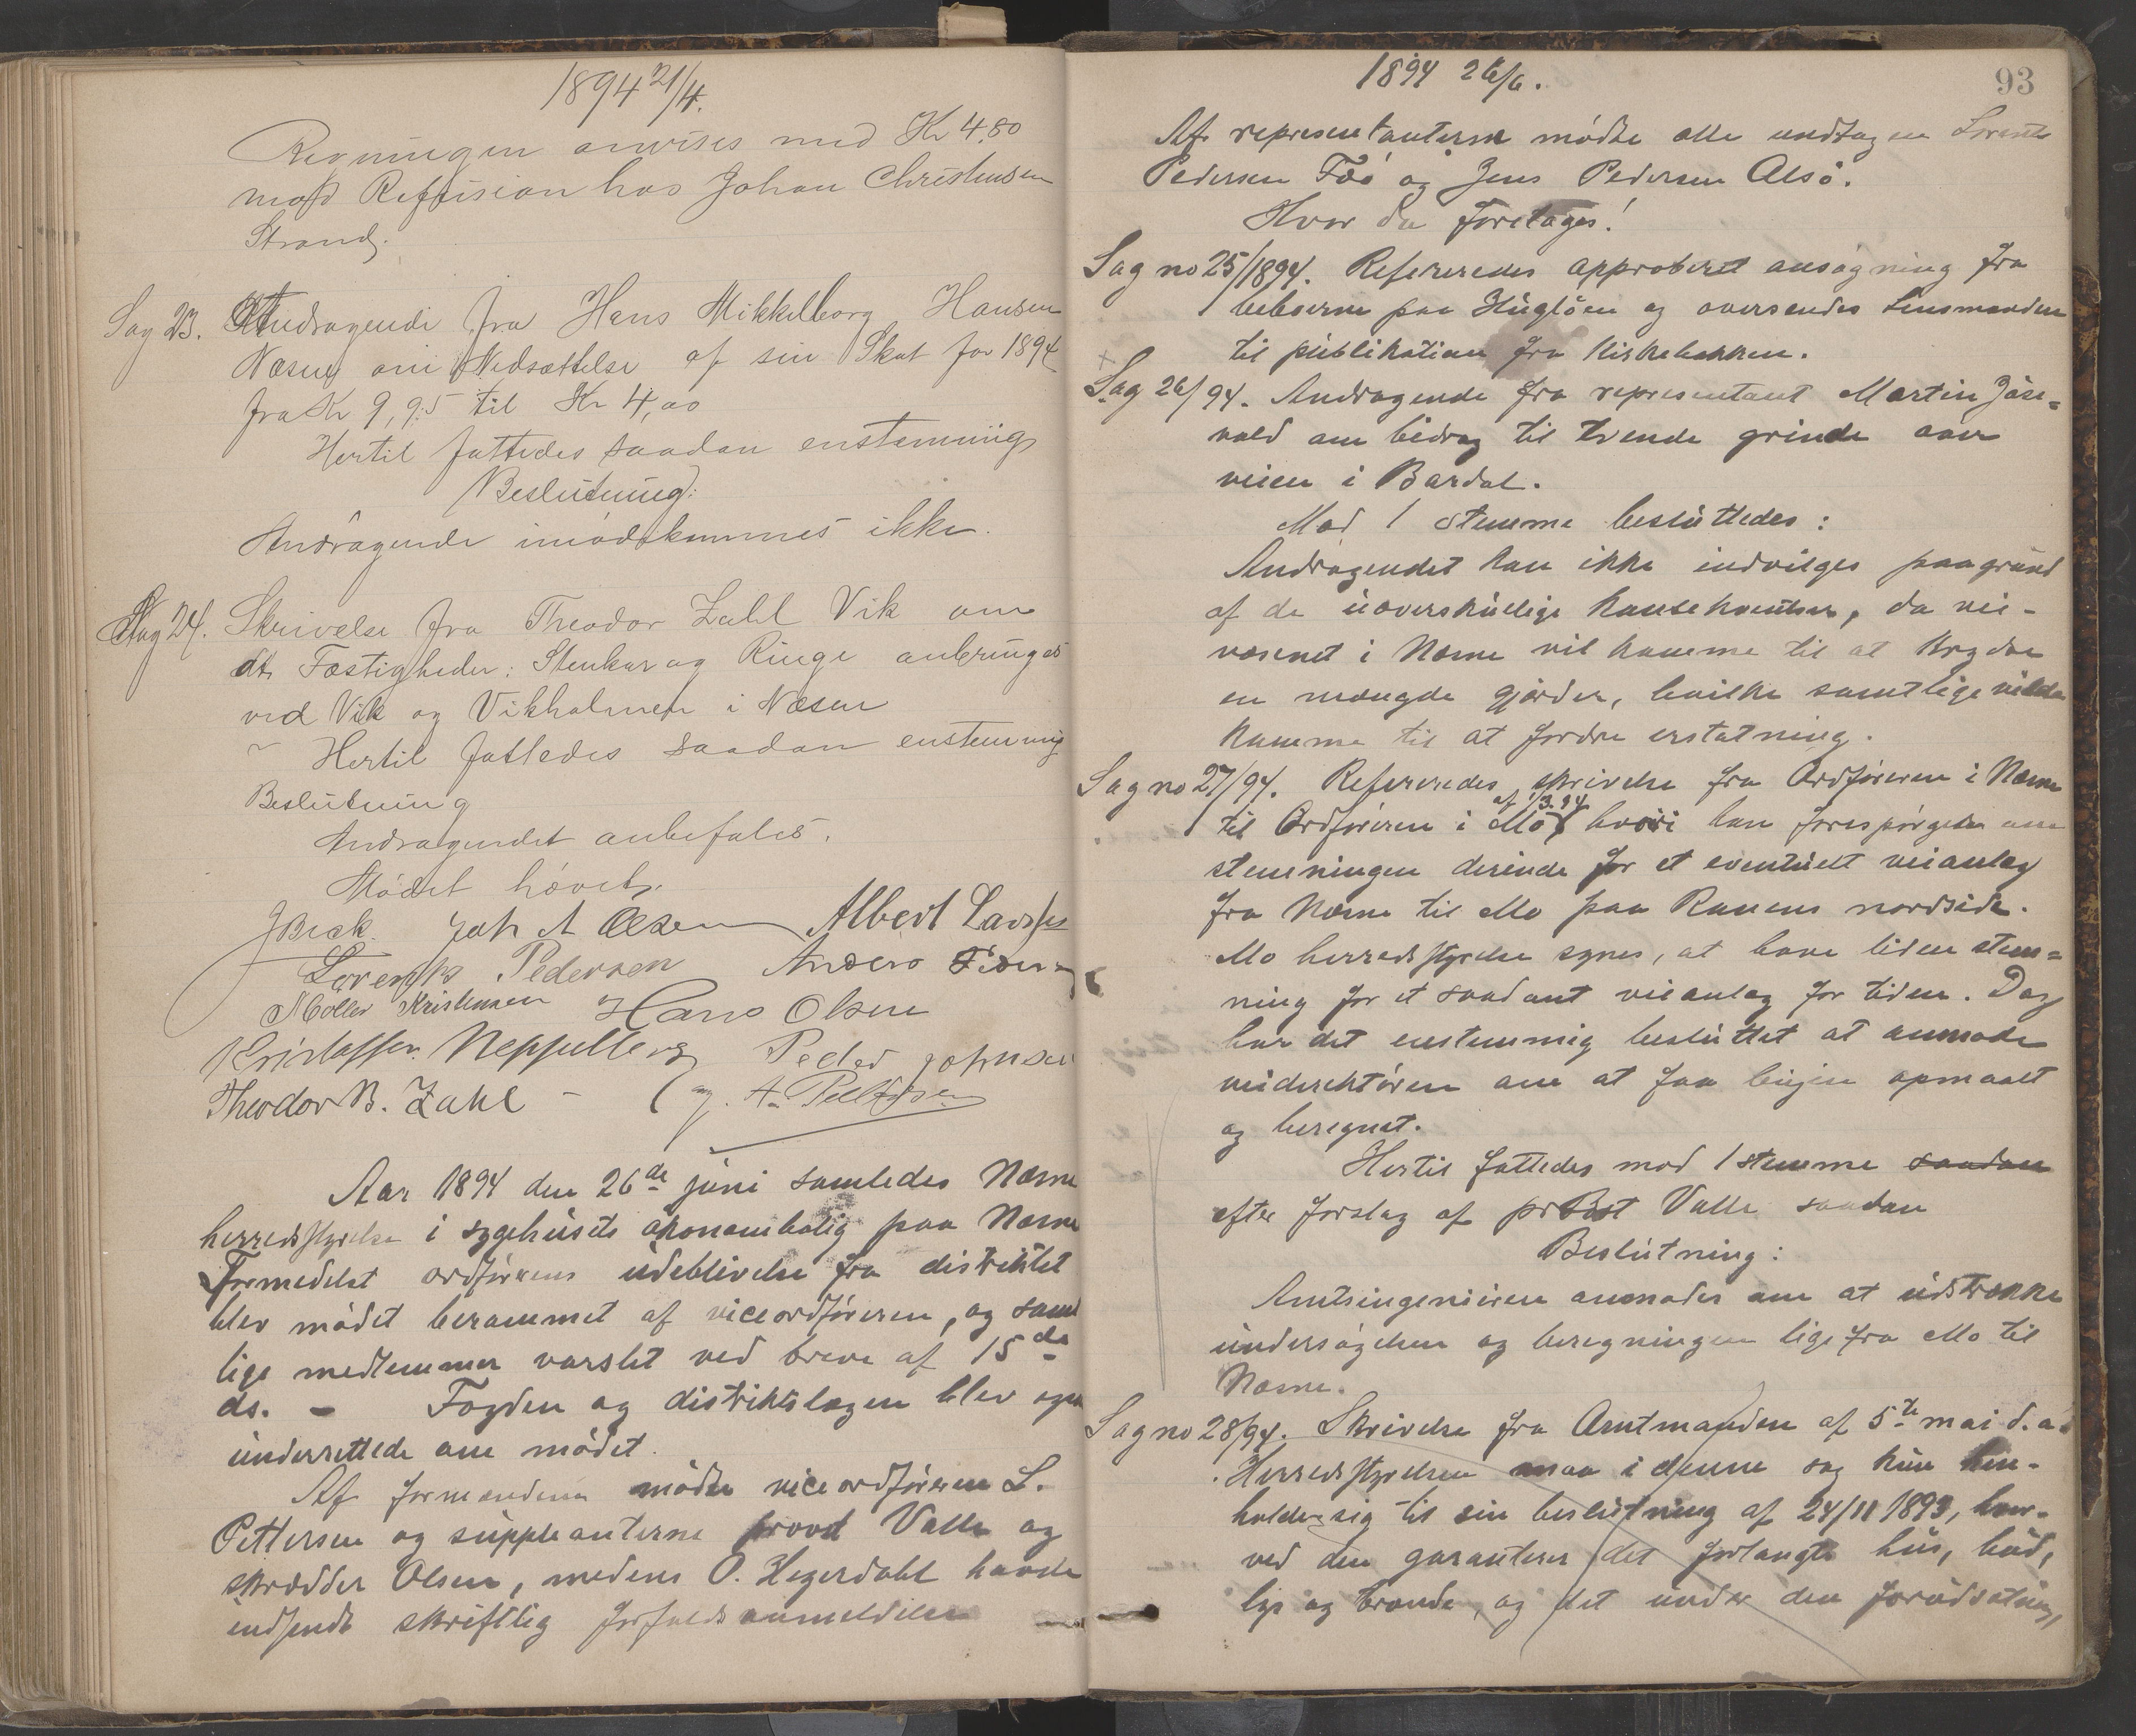 1894 21/4.
Regningen anvises med Kr 4.80
mod Refusion hos Johan Christensen
Strand.
Sag 23. Andragende fra Hans Mikkelborg Hansen
Næsen om Nedsættelse af sin Skat for 1894
fra Kr 9,95 til Kr 4,00
Hertil fattedes saadan enstemmig
Beslutning:
Andragende imødekommes ikke.
Sag 24. Skrivelse fra Theodor Zahl Vik om
at Fæstigheder: Stenkar og Ringe anbringes
ved Vik og Vikholmen i Næsen
Hertil fattedes saadan enstemmig
Beslutning
Andragendet anbefales.
Mødet hævet.
J Beck. Joh A Olsen Albert Larssen
Lorents Pedersen Anders
Møller Kristensen Hans Olsen
Kristoffer Neppelberg Peder Johnsen
Theodor B. Zahl - A. Pettersen
Aar 1894 den 26de juni samledes Næsne
herredsstyrelse i sygehusets økonombolig paa Næsne
Formedelst ordførerens udeblivelse fra distriktet
blev mødet berammet af viceordføreren, og samt
lige medlemmer varslet ved breve af 15de
ds. - Fogden og distriktslægen blev og
underrettede om mødet.
Af formændene mødte viceordføreren L.
Pettersen og suppleanterne provst Valle og
skrædder Olsen, medens O. Hegerdahl havde
indsendt skriftlig forfaldsanmeldelse
1894 26/6.
93
Af representanterne mødte alle undtagen Lorents
Pedersen Fæø og Jens Pedersen Alsö.
Hvor da foretages!
Sag no 25/1894. Refereredes approberet ansøgning fra
beboerne paa Hugløen og oversendes Lensmanden
til publikation fra kirkebakken.
Sag 26/94. Andragende fra representant Martin Jäse=
vold om bidrag til tvende grinde over
veien i Bardal.
Mod 1 stemme besluttedes:
Andragendet kan ikke indvilges paa grund
af de uoverskuelige konsekventser, da vei-
væsenet i Næsne vil komme til at krydse
en mængde gjærder, hvilke samtlige vilde
komme til at fordre erstatning.
Sag no 27/94. Refereredes skrivelse fra Ordføreren i Næsne
af 1/3.94
til Ordføreren i Mo hvori han forespørger om
stemningen derinde for et eventuelt veianlæg
fra Næsne til Mo paa Ranens nordside.
Mo herredsstyrelse synes, at have liden stem=
ning for et saadant veianlæg for tiden. Dog
har det enstemmig besluttet at anmode
veidirektøren om at faa linjen opmaalt
og beregnet.
Hertil fattedes mod 1 stemme saadan
efter forslag af provst Valle saadan
Beslutning:
Amtsingeniøren anmodes om at udstrække
undersøgelsen og beregningen lige fra Mo til
Næsne.
Sag no 28/94. Skrivelse fra Amtmanden af 5te mai d.a.
Herredsstyrelsen maa i denne sag kun hen-
holde sig til sin beslutning af 24/11 1893, hvor-
ved den garanterer det forlangte hus,
lys og brænde, og det under den forudsætning,